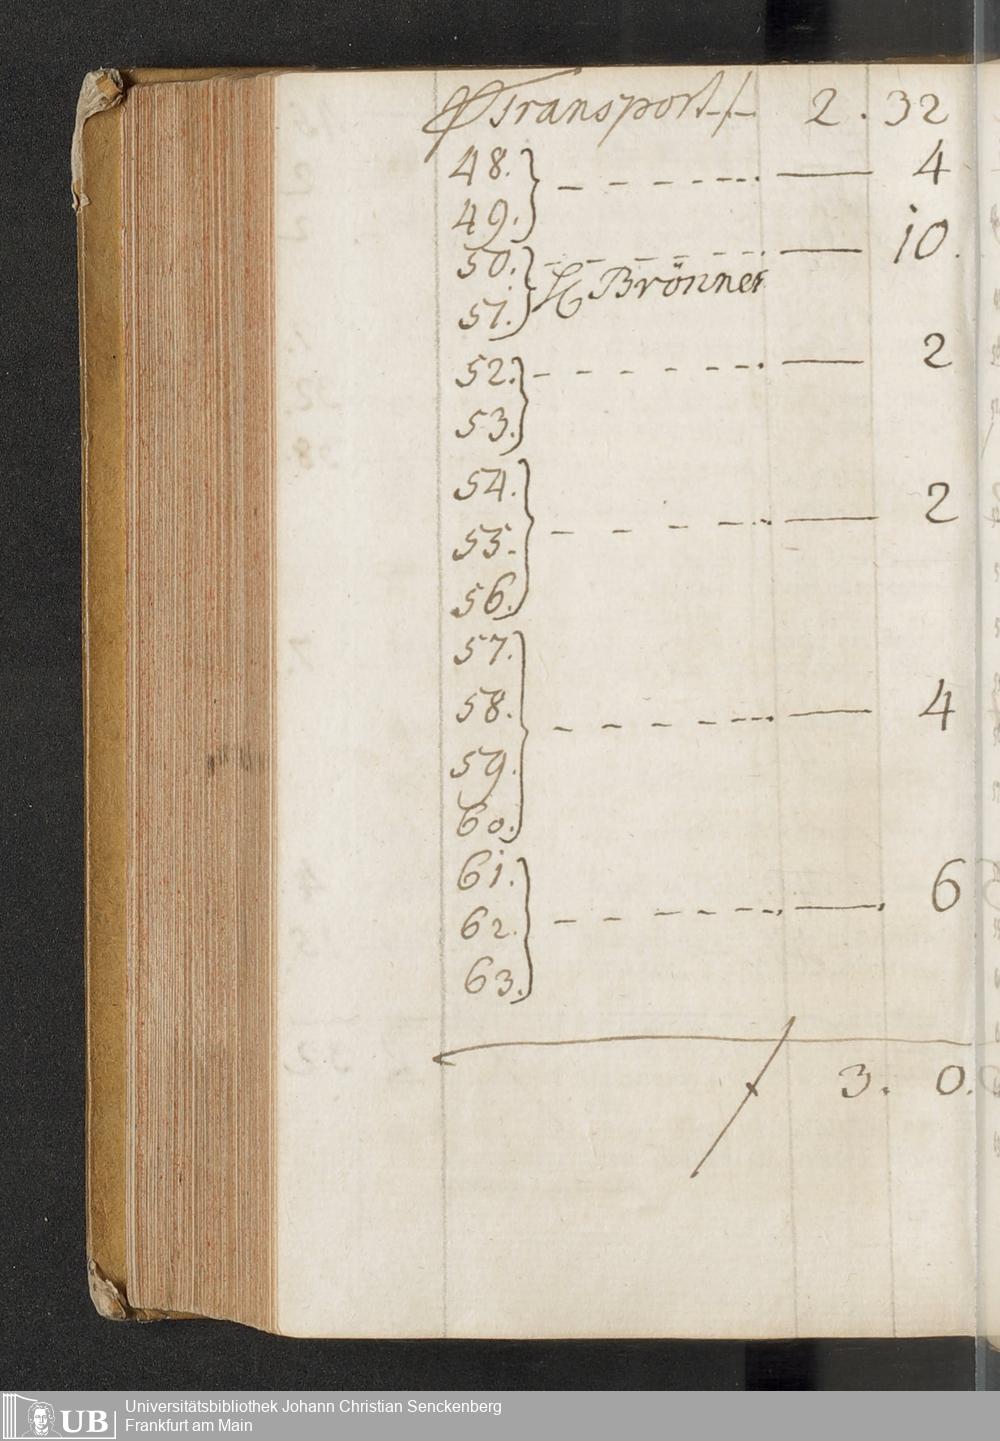 Transport 2. 32
48. — 4
49.
50. — 10.
51. H Brönner
52. — 2
53.
54.
55. — 2
56.
57.
58. — 4
59.
60.
61.
62. — 6
63.
3. 0.
UB Universitätsbibliothek Johann Christian Senckenberg
Frankfurt am Main